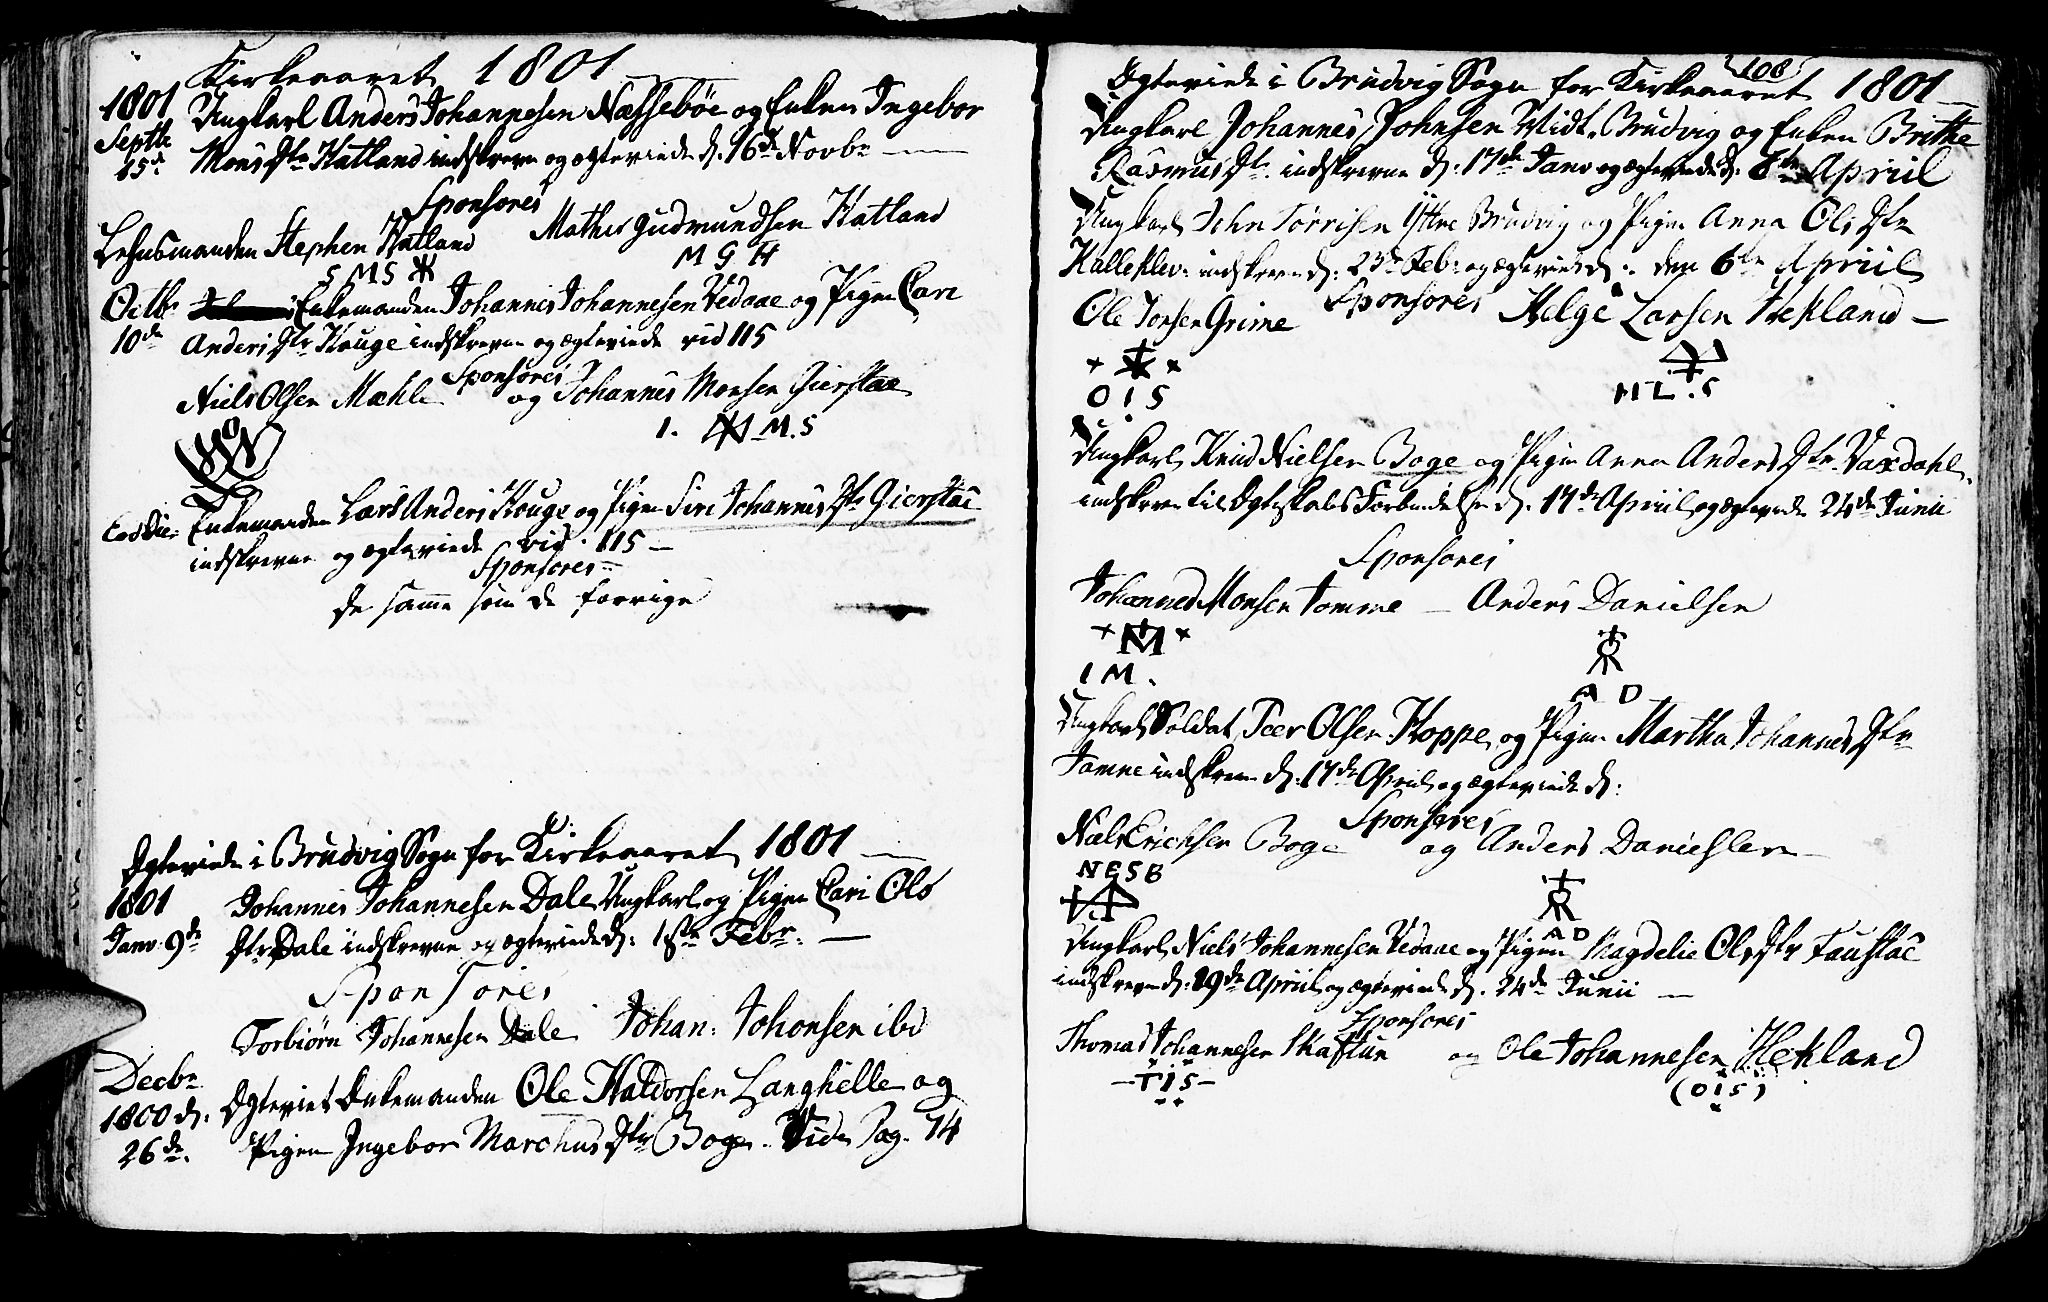 Kirkeaaret 1801
1801 Ungkarl Anders Johannesen Næssebøe og Enken Ingebor
Septbr
15de Mons Dtr Hatland indskrevne og ægteviede d. 16de Novbr
Sponsores
Lehnsmanden Stephen Hatland Mathis Gudmundsen Hatland
S M S M G H
Octbr Enkemanden Johannes Johannesen Vedaae og Pigen Cari
10de Anders Dtr Houge indskrevne og ægteviede vid 115
Sponsores
Niels Olsen Mæhle og Johannes Monsen Gierstae
I. M. S
Eod Die Enkemanden Lars Anders Houge og Pigen Siri Johannes Dtr Gierstae
indskrevne og ægteviede vid. 115
Sponsores
de samme som de forrige
Ægteviede i Brudvig Sogn for Kirkeaaret 1801
1801 Johannes Johannesen Dale Ungkarl og Pigen Cari Ols
Janv. 9de Dtr Dale indskrevne og ægteviede d: 1ste Febr.
Sponsores
Torbiørn Johannesen Dale Johan: Johonsen ibd
Decbr
1800 d. Ægteviet Enkemanden Ole Haldorsen Langhelle og
26de. Pigen Ingebor Marchus Dtr Boge. Vide Pag. 74
108
Ægteviede i Brudvig Sogn for Kirkeaaret 1801
Ungkarl Johannes Johnsen Midt-Brudvig og Enken Brithe
Rasmus Dtr. indskrevne d: 17de Janv og ægteviede d: 6te Apriil
Ungkarl John Torrisen Ittre Brudvig og Pigen Anna Ols Dtr
Kalleklev: indskrevne d: 23de Feb: og ægteviede d: den 6te Apriil
Sponsores
Ole Jonsen Grime Helge Larsen Hekland
O I S H L. S
Ungkarl Knud Nielsen Boge og Pigen Anna Anders Dtr Vaxdahl
indskrevne til Ægteskabs Forbindelse d. 17de Apriil og ægteviede 24de Junii
Sponsores
Johannes Monsen Tomme Anders Danielsen
M
I M. A D
Ungkarl Soldat Peer Olsen Hoppe og Pigen Martha Johannes Dtr
Tomne indskrevne d. 17de Apriil og ægteviede d:
Sponsores
Niels Erichsen Boge og Anders Danielsen
N E S B
A D
Ungkarl Niels Johannesen Vedaae og Pigen Magdelie Ols Dtr Faustae
indskrevne d: 19de Apriil og ægteviede d. 24de Junii
Sponsores
Thomas Johannesen Skaftun og Ole Johannesen Hekland
T I S (O I S)